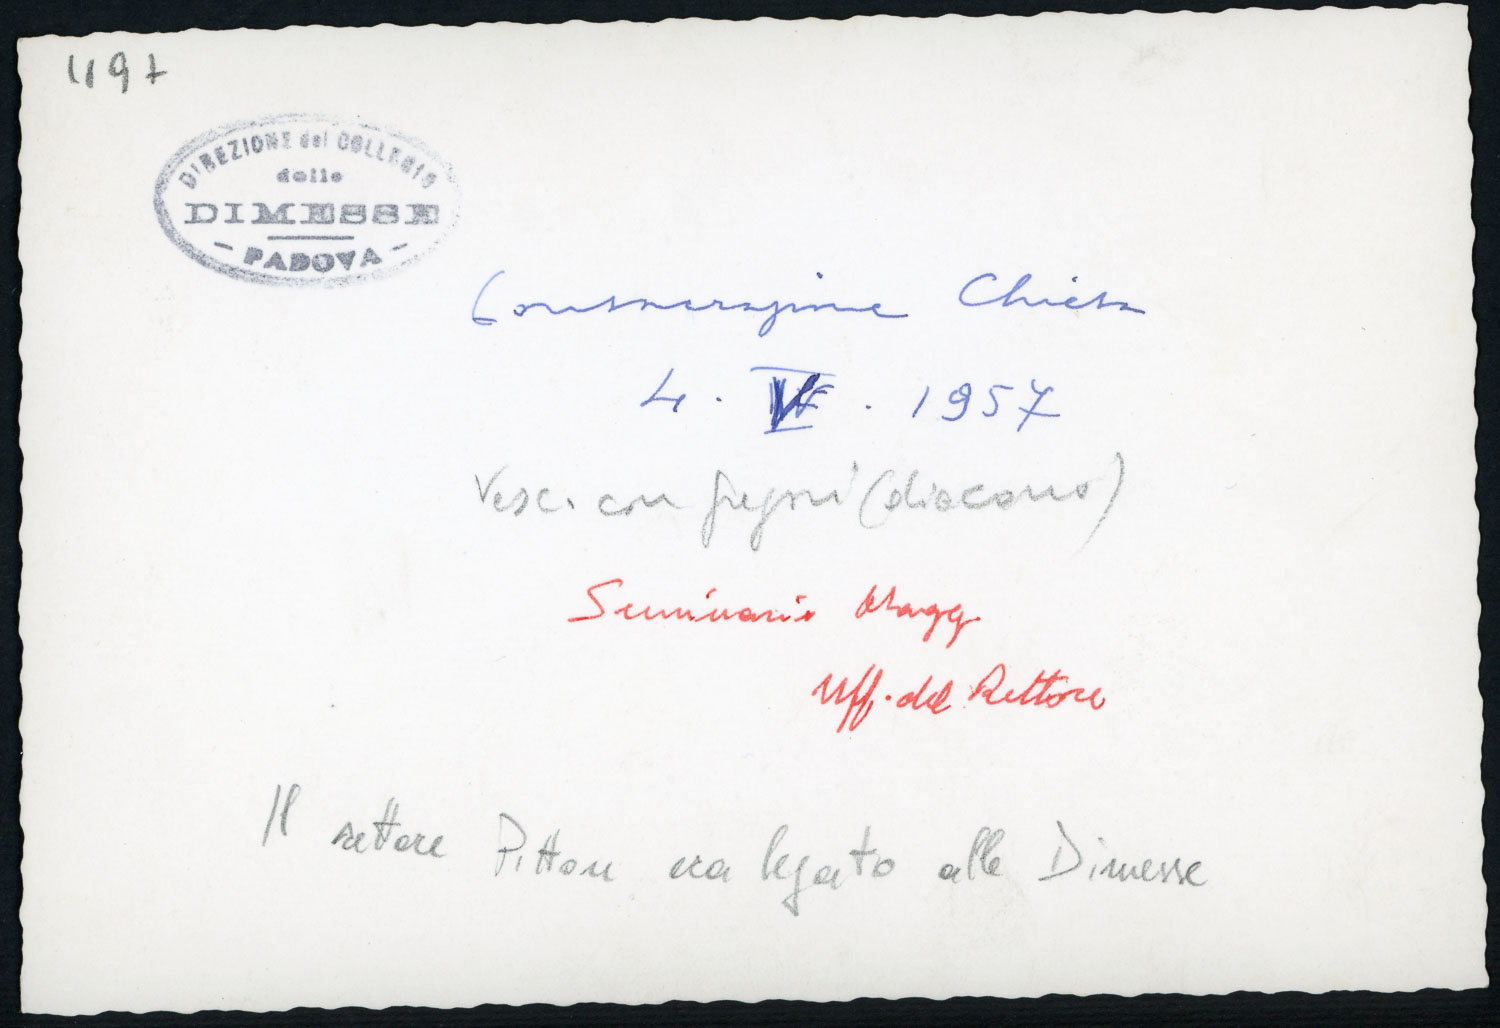 4197
DIREZIONE del COLLEGIO
delle
DIMESSE
- PADOVA -
Consacrazione Chiesa
4. . 1957
con (diacono)
Seminario Magg.
Uff. del Rettore
Il rettore Pitton era legato alle Dimesse